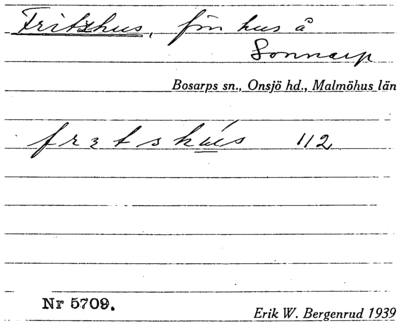 Fritzhus, f͞m hus å
Sonnarp
Bosarps sn., Onsjö hd., Malmöhus län
frɛtshús 112
Nr 5709.
Erik W. Bergenrud 1939